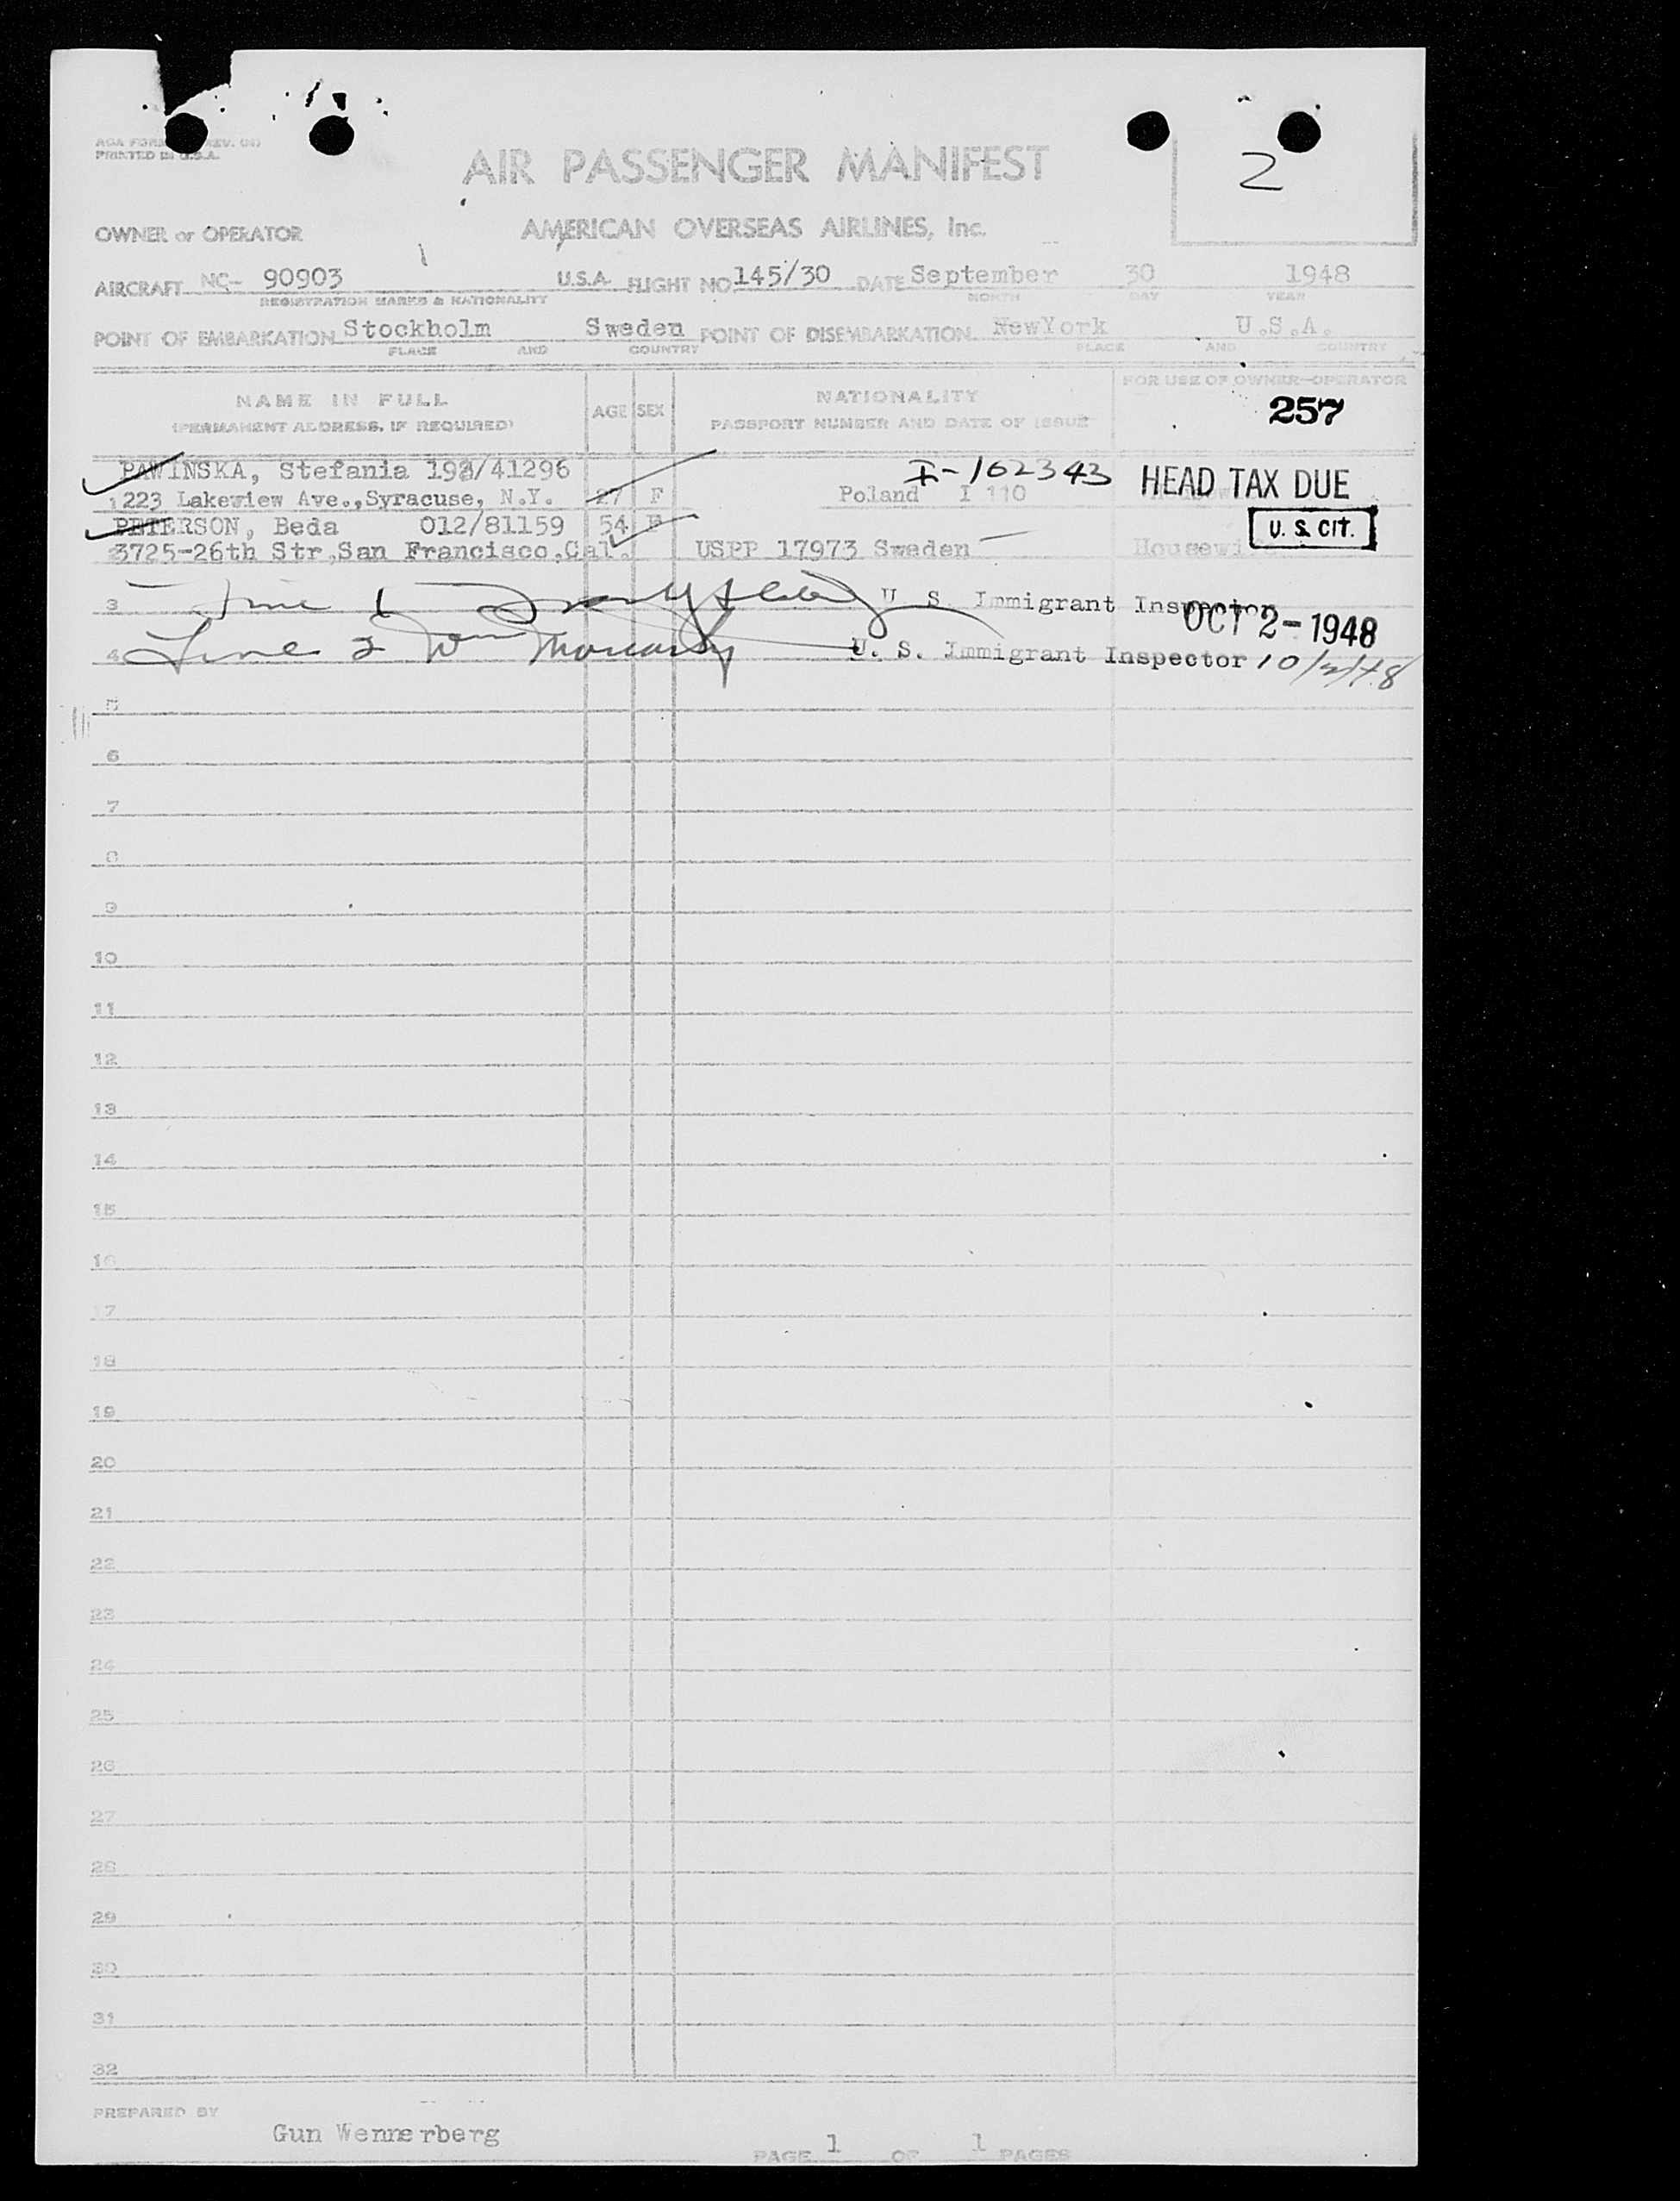 PRINTED IN U.S.A.
2
AIR PASSENGER MANIFEST
OWNER or OPERATOR AMERICAN OVERSEAS AIRLINES, Inc.
AIRCRAFT NC- 90903 U.S.A. FLIGHT NO 145/30 DATE September 30 1948
REGISTRATION MARKS & NATIONALITY MONTH DAY YEAR
POINT OF EMBARKATION Stockholm Sweden POINT OF DISEMBARKATION NewYork U.S.A.
PLACE AND COUNTRY PLACE AND COUNTRY
NAME IN FULL AGE SEX NATIONALITY FOR USE OF OWNER-OPERATOR
(PERMANENT ADDRESS, IF REQUIRED) PASSPORT NUMBER AND DATE OF ISSUE 257
PAWINSKA, Stefania /41296 I-162343 HEAD TAX DUE
1223 Lakewiew Ave.,Syracuse, N.Y. 27 F Poland I 110
PETERSON, Beda 012/81159 54 F U. S. CIT.
3725-26th Str,San Francisco,Cal. USPP 17973 Sweden Housewi
3 Line 1 U. S. Immigrant Inspector OCT 2-1948
4 Line 2 Wm U. S. Immigrant Inspector 10/2/48
5
6
7
8
9
10
11
12
13
14
15
16
17
18
19
20
21
22
23
24
25
26
27
28
29
30
31
32
PREPARED BY
Gun Wennerberg
PAGE 1 OF 1 PAGES